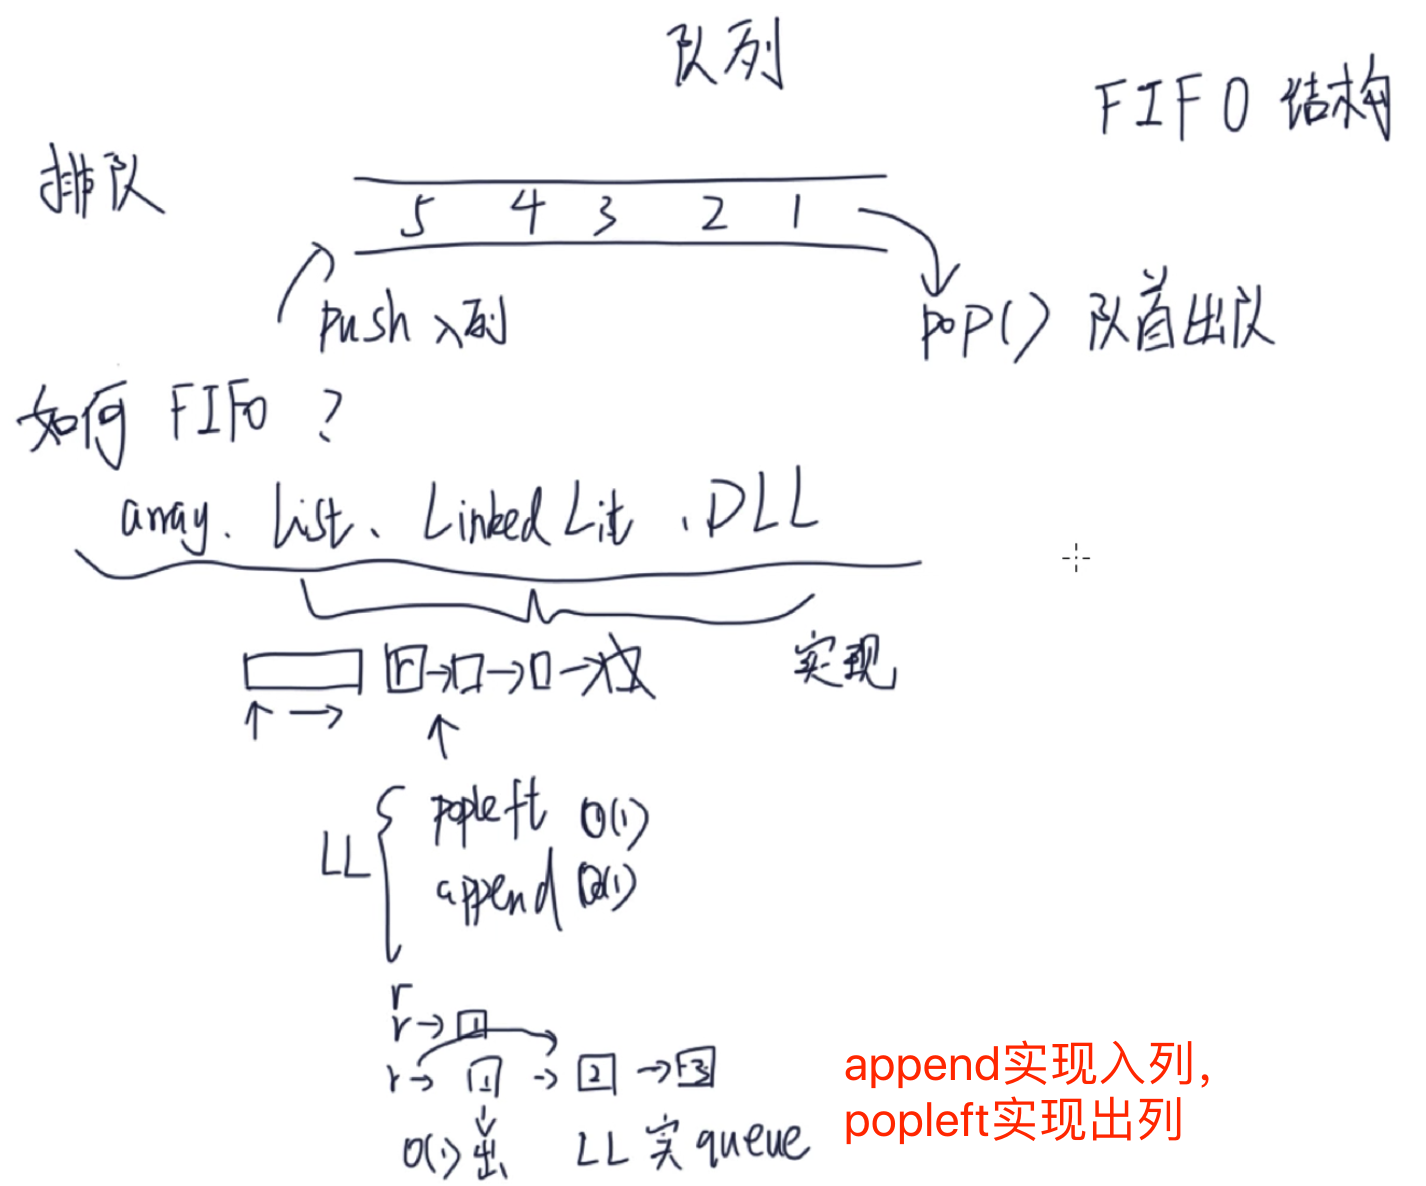 队列
FIFO 结构
排队
5 4 3 2 1
push 入列
pop() 队首出队
如何 FIFO ?
array、list、Linked Lit、DLL
实现
r
LL
popleft O(1)
append O(1)
r
r → 1
r → 1 → 2 → 3
O(1) 出
LL 实 queue
append实现入列，
popleft实现出列